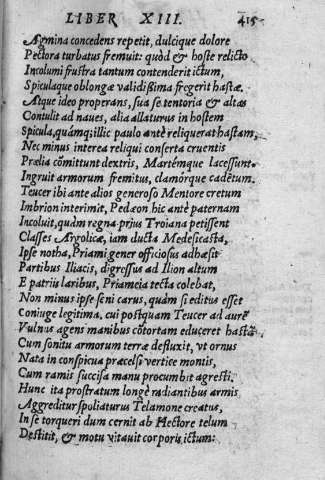 LIBER XIII. 415
Agmina concedens repetit, dulcique dolore
Pectora turbatus fremuit: quòd & hoste relicto
Incolumi frustra tantum contenderit ictum,
Spiculaque oblongæ validißima fregerit hastæ.
Atque ideo properans, sua se tentoria & altas
Contulit ad naues, alia allaturus in hostem
Spicula, quámq; illic paulo antè reliquerat hastam,
Nec minus interea reliqui conserta cruentis
Prælia cõmittunt dextris, Martémque lacessunt.
Ingruit armorum fremitus, clamórque cadētum.
Teucer ibi ante alios generoso Mentore cretum
Imbrion interimit, Pedæon hic antè paternam
Incoluit, quàm regna prius Troiana petissent
Classes Argolicæ, iam ducta Medesicasta,
Ipse notha, Priami gener officiosus adhæsit
Partibus Iliacis, digressus ad Ilion altum
E patriis laribus, Priameia tecta colebat,
Non minus ipse seni carus, quàm si editus esset
Coniuge legitima, cui postquam Teucer ad aurē
Vulnus agens manibus cõtortam educeret hastã
Cum sonitu armorum terræ defluxit, vt ornus
Nata in conspicua præcelsi vertice montis,
Cum ramis succisa manu procumbit agresti.
Hunc ita prostratum longè radiantibus armis
Aggreditur spoliaturus Telamone creatus,
In se torqueri dum cernit ab Hectore telum
Destitit, & motu vitauit corporis ictum: